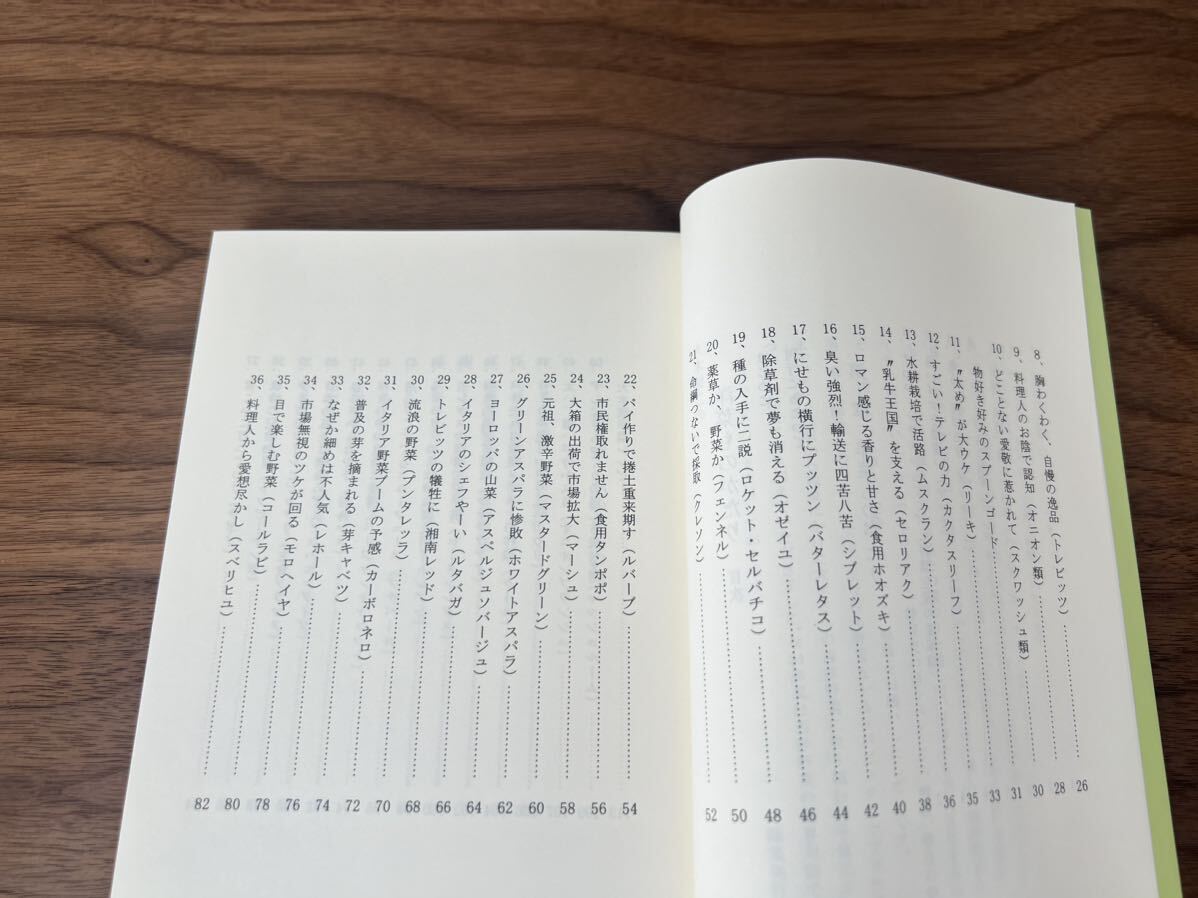 8、胸わくわく、自慢の逸品（トレビッツ）……26
9、料理人のお陰で認知（オニオン類）……28
10、どことない愛敬に惹かれて（スクワッシュ類）……30
物好き好みのスプーンゴード……31
11、〝太め〟が大ウケ（リーキ）……33
12、すごい！テレビの力（カクタスリーフ）……35
13、水耕栽培で活路（ムスクラン）……36
14、〝乳牛王国〟を支える（セロリアク）……38
15、ロマン感じる香りと甘さ（食用ホオズキ）……40
16、臭い強烈！輸送に四苦八苦（シブレット）……42
17、にせもの横行にプッツン（バターレタス）……44
18、除草剤で夢も消える（オゼイユ）……46
19、種の入手に二説（ロケット・セルバチコ）……48
20、薬草か、野菜か（フェンネル）……50
21、命綱つないで採取（クレソン）……52
22、パイ作りで捲土重来期す（ルバーブ）……54
23、市民権取れません（食用タンポポ）……56
24、大箱の出荷で市場拡大（マーシュ）……58
25、元祖、激辛野菜（マスタードグリーン）……60
26、グリーンアスパラに惨敗（ホワイトアスパラ）……62
27、ヨーロッパの山菜（アスペルジュソバージュ）……64
28、イタリアのシェフやーい（ルタバガ）……66
29、トレビッツの犠牲に（湘南レッド）……68
30、流浪の野菜（プンタレッラ）……70
31、イタリア野菜ブームの予感（カーボロネロ）……72
32、普及の芽を摘まれる（芽キャベツ）……74
33、なぜか細めは不人気（レホール）……76
34、市場無視のツケが回る（モロヘイヤ）……78
35、目で楽しむ野菜（コールラビ）……80
36、料理人から愛想尽かし（スベリヒユ）……82